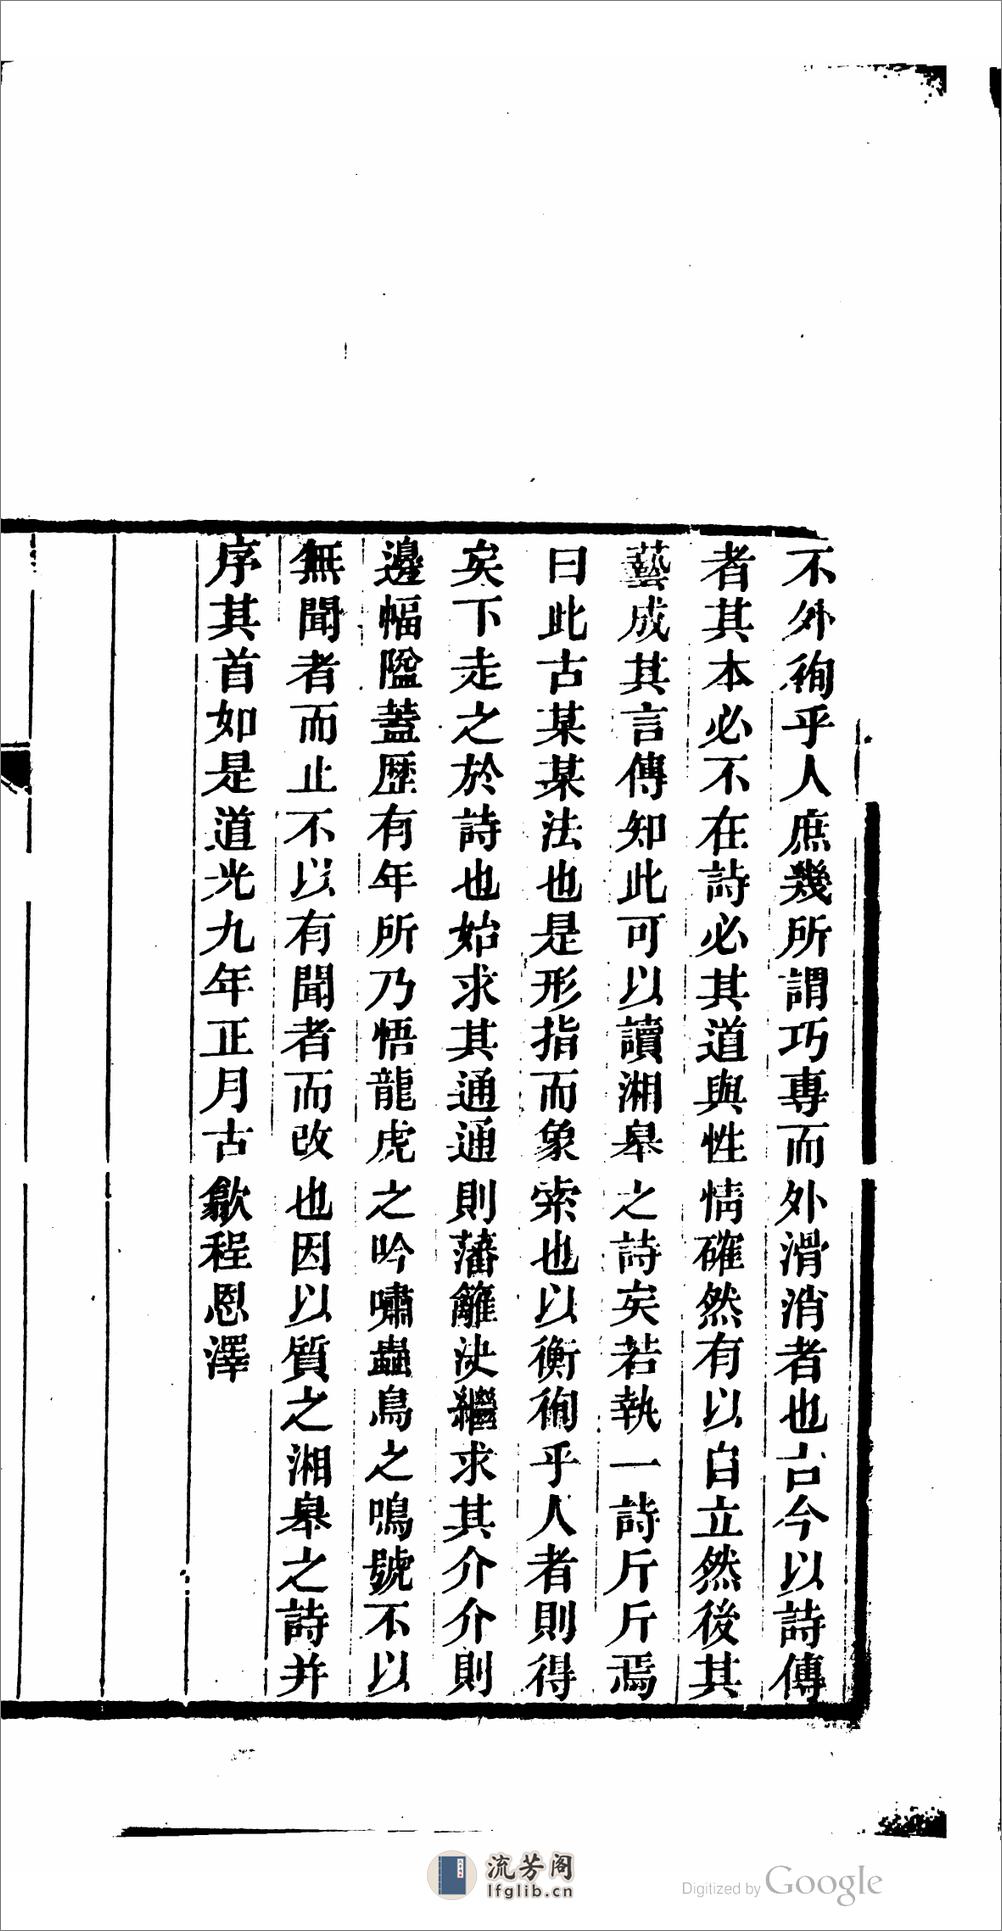 不外徇乎人庶幾所謂巧專而外滑消者也古今以詩傳
者其本必不在詩必其道與性情確然有以自立然後其
藝成其言傳知此可以讀湘皋之詩矣若執一詩斤斤焉
曰此古某某法也是形指而象索也以衡徇乎人者則得
矣下走之於詩也始求其通通則藩籬決繼求其介介則
邊幅隘蓋歷有年所乃悟龍虎之吟嘯蟲鳥之鳴號不以
無聞者而止不以有聞者而改也因以質之湘皋之詩并
序其首如是道光九年正月古歙程恩澤
流芳阁
lfglib.cn
Digitized by Google